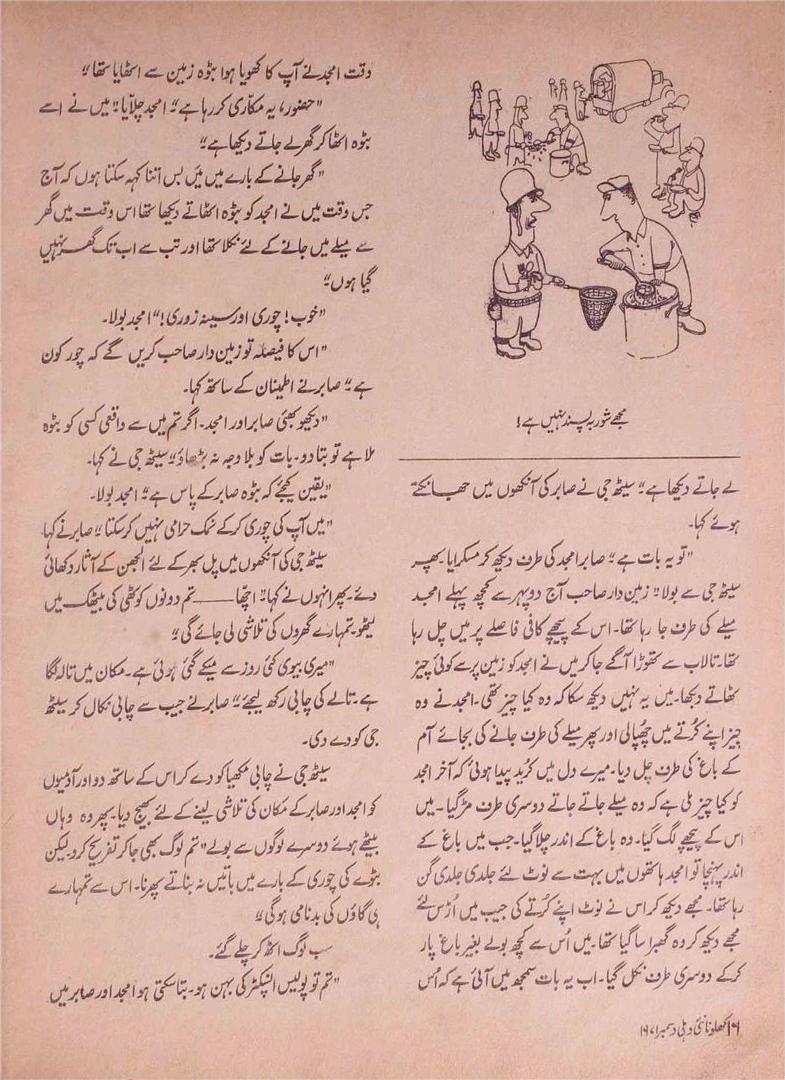 مجھے شوربہ پسند نہیں ہے!
لے جاتے دیکھا ہے" سیٹھ جی نے صابر کی آنکھوں میں جھانکتے
ہوئے کہا۔
"تو یہ بات ہے" صابر امجد کی طرف دیکھ کر مسکرایا۔ پھر
سیٹھ جی سے بولا" زمین دار صاحب آج دوپہر سے کچھ پہلے امجد
میلے کی طرف جا رہا تھا۔ اس کے پیچھے کافی فاصلے پر میں چل رہا
تھا۔ تالاب سے تھوڑا آگے جا کر میں نے امجد کو زمین پر سے کوئی چیز
اٹھاتے دیکھا۔ میں یہ نہیں دیکھ سکا کہ وہ کیا چیز تھی۔ امجد نے وہ
چیز اپنے کُرتے میں چھُپالی اور پھر میلے کی طرف جانے کی بجائے آم
کے باغ کی طرف چل دیا۔ میرے دل میں کُرید پیدا ہوئی کہ آخر امجد
کو کیا چیز ملی ہے کہ وہ میلے جاتے جاتے دوسری طرف مڑ گیا۔ میں
اس کے پیچھے لگ گیا۔ وہ باغ کے اندر چلا گیا۔ جب میں باغ کے
اندر پہنچا تو امجد ہاتھوں میں بہت سے نوٹ لئے جلدی جلدی گن
رہا تھا۔ مجھے دیکھ کر اس نے نوٹ اپنے کُرتے کی جیب میں اُڑس لئے
مجھے دیکھ کر وہ گھبرا سا گیا تھا۔ میں اُس سے کچھ بولے بغیر باغ پار
کرکے دوسری طرف نکل گیا۔ اب یہ بات سمجھ میں آئی ہے کہ اُس
وقت امجد نے آپ کا کھویا ہوا بٹوہ زمین سے اٹھایا تھا"
"حضور، یہ مکاری کر رہا ہے" امجد چلّایا" میں نے اسے
بٹوہ اٹھا کر گھر لے جاتے دیکھا ہے"
"گھر جانے کے بارے میں میں بس اتنا کہہ سکتا ہوں کہ آج
جس وقت میں نے امجد کو بٹوہ اٹھاتے دیکھا تھا اس وقت میں گھر
سے میلے میں جانے کے لئے نکلا تھا اور تب سے اب تک گھر نہیں
گیا ہوں"
"خوب! چوری اور سینہ زوری!" امجد بولا۔
"اس کا فیصلہ تو زمین دار صاحب کریں گے کہ چور کون
ہے" صابر نے اطمینان کے ساتھ کہا۔
"دیکھو بھئی صابر اور امجد۔ اگر تم میں سے واقعی کسی کو بٹوہ
ملا ہے تو بتا دو۔ بات کو بلا وجہ نہ بڑھاؤ" سیٹھ جی نے کہا۔
"یقین کیجئے کہ بٹوہ صابر کے پاس ہے" امجد بولا۔
"میں آپ کی چوری کرکے نمک حرامی نہیں کر سکتا" صابر نے کہا۔
سیٹھ جی کی آنکھوں میں پل بھر کے لئے الجھن کے آثار دکھائی
دئے۔ پھر انہوں نے کہا" اچھّا —— تم دونوں کوٹھی کی بیٹھک میں
بیٹھو۔ تمہارے گھروں کی تلاشی لی جائے گی"
"میری بیوی کئی روز سے میکے گئی ہوئی ہے۔ مکان میں تالہ لگا
ہے۔ تالے کی چابی رکھ لیجئے" صابر نے جیب سے چابی نکال کر سیٹھ
جی کو دے دی۔
سیٹھ جی نے چابی مکھیا کو دے کر اس کے ساتھ دو اور آدمیوں
کو امجد اور صابر کے مکان کی تلاشی لینے کے لئے بھیج دیا۔ پھر وہ وہاں
بیٹھے ہوئے دوسرے لوگوں سے بولے" تم لوگ بھی جا کر تفریح کرو لیکن
بٹوے کی چوری کے بارے میں باتیں نہ بناتے پھرنا۔ اس سے تمہارے
ہی گاؤں کی بدنامی ہوگی"
سب لوگ اٹھ کر چلے گئے۔
"تم تو پولیس انسپکٹر کی بہن ہو۔ بتا سکتی ہو امجد اور صابر میں
۱۶ کھلونا نئی دہلی دسمبر ۱۹۷۱